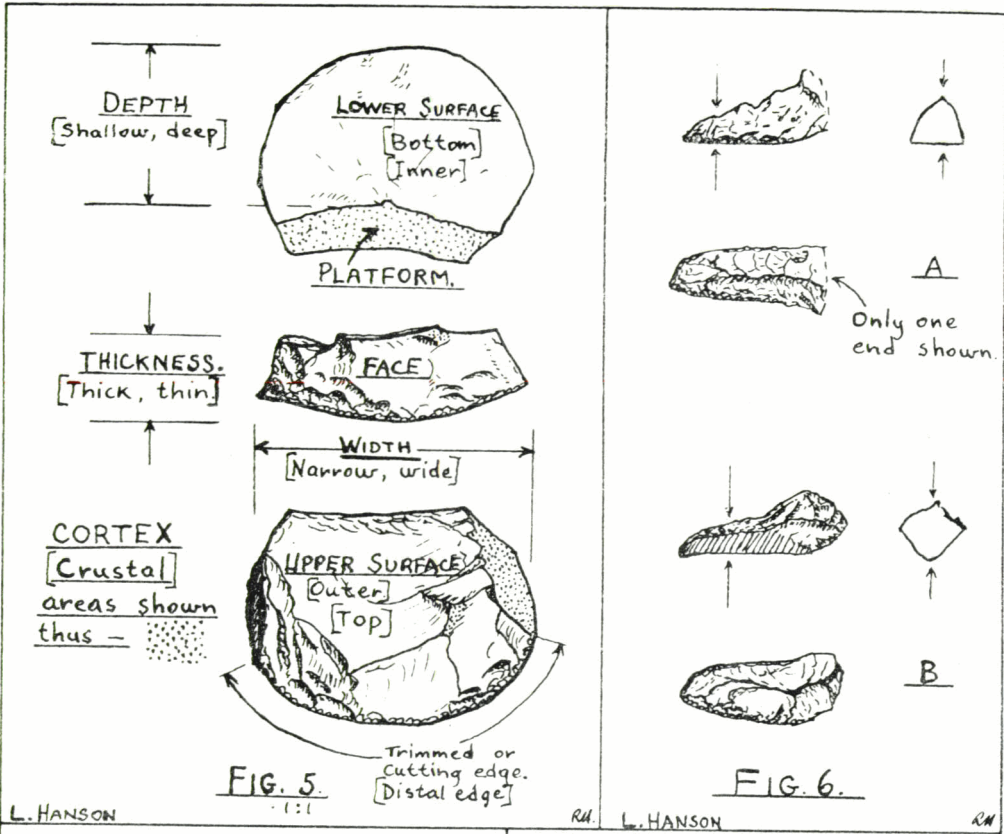 DEPTH
[Shallow, deep]
LOWER SURFACE
[Bottom]
[Inner]
PLATFORM.
THICKNESS.
[Thick, thin]
FACE
WIDTH
[Narrow, wide]
CORTEX
[Crustal]
areas shown
thus –
UPPER SURFACE
[Outer]
[Top]
Trimmed or
Cutting edge.
[Distal edge]
FIG. 5.
1:1
L. HANSON
RH.
A
Only one
end shown.
B
FIG. 6.
L. HANSON
RH